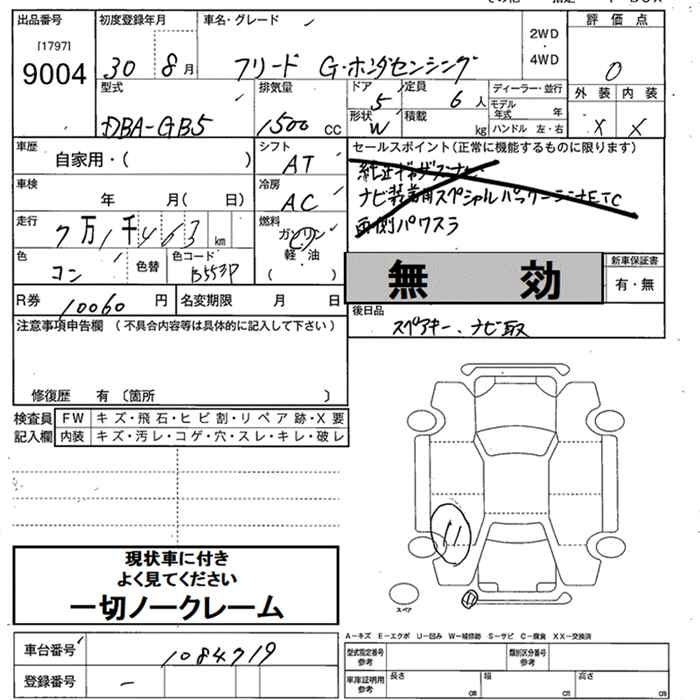 出品番号 初度登録年月 車名・グレード 2WD・4WD 評価点
[1797]
9004 30 8月 フリード G・ホンダセンシング 0
型式 排気量 ドア 定員 ディーラー・並行 外装 内装
DBA-GB5 1500 CC 5 6人 モデル年式 年 X X
形状 W 積載 kg ハンドル 左・右
車歴 シフト セールスポイント(正常に機能するものに限ります)
自家用・( ) AT
車検 年 月( 日) 冷房 AC ナビ装着用スペシャルパッケージETC
走行 7万1千463km 燃料 ガソリン 両側パワスラ
軽・油
( )
色 コン 色替 色コード B553P 無効 新車保証書
有・無
R券 10060円 名変期限 月 日 後日品
スペアキー、ナビ取
注意事項申告欄(不具合内容等は具体的に記入して下さい)
修復歴 有 〔箇所 〕
検査員 FW キズ・飛石・ヒビ割・リペア跡・X要
記入欄 内装 キズ・汚レ・コゲ・穴・スレ・キレ・破レ
現状車に付き
よく見てください
一切ノークレーム
スペア
A-キズ E-エクボ U-凹み W-補修跡 S-サビ C-腐食 XX-交換済
車台番号 1084719 型式指定番号 参考 類別区分番号 参考
登録番号 - 車庫証明用 参考 長さ cm 幅 cm 高さ cm